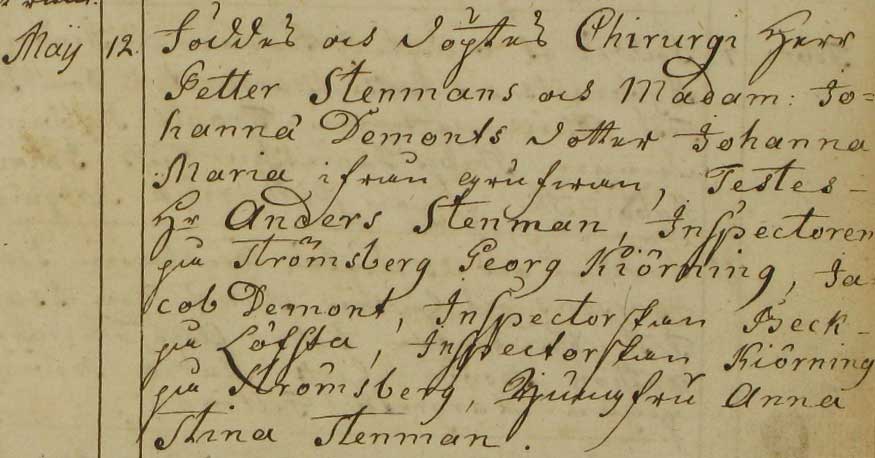 Maij 12. Föddes och döptes Chirurgi Herr
Petter Stenmans och Madam: Jo=
hanna Demonts dotter Johanna
Maria ifrån grufwan, Testes -
Hr Anders Stenman, Inspectoren
på Strömsberg Georg Kiörning, Ja=
cob Demont, Inspectorskan Beck -
på Löfsta, Inspectorskan Kiörning
på Strömsberg, Jungfru Anna
Stina Stenman.